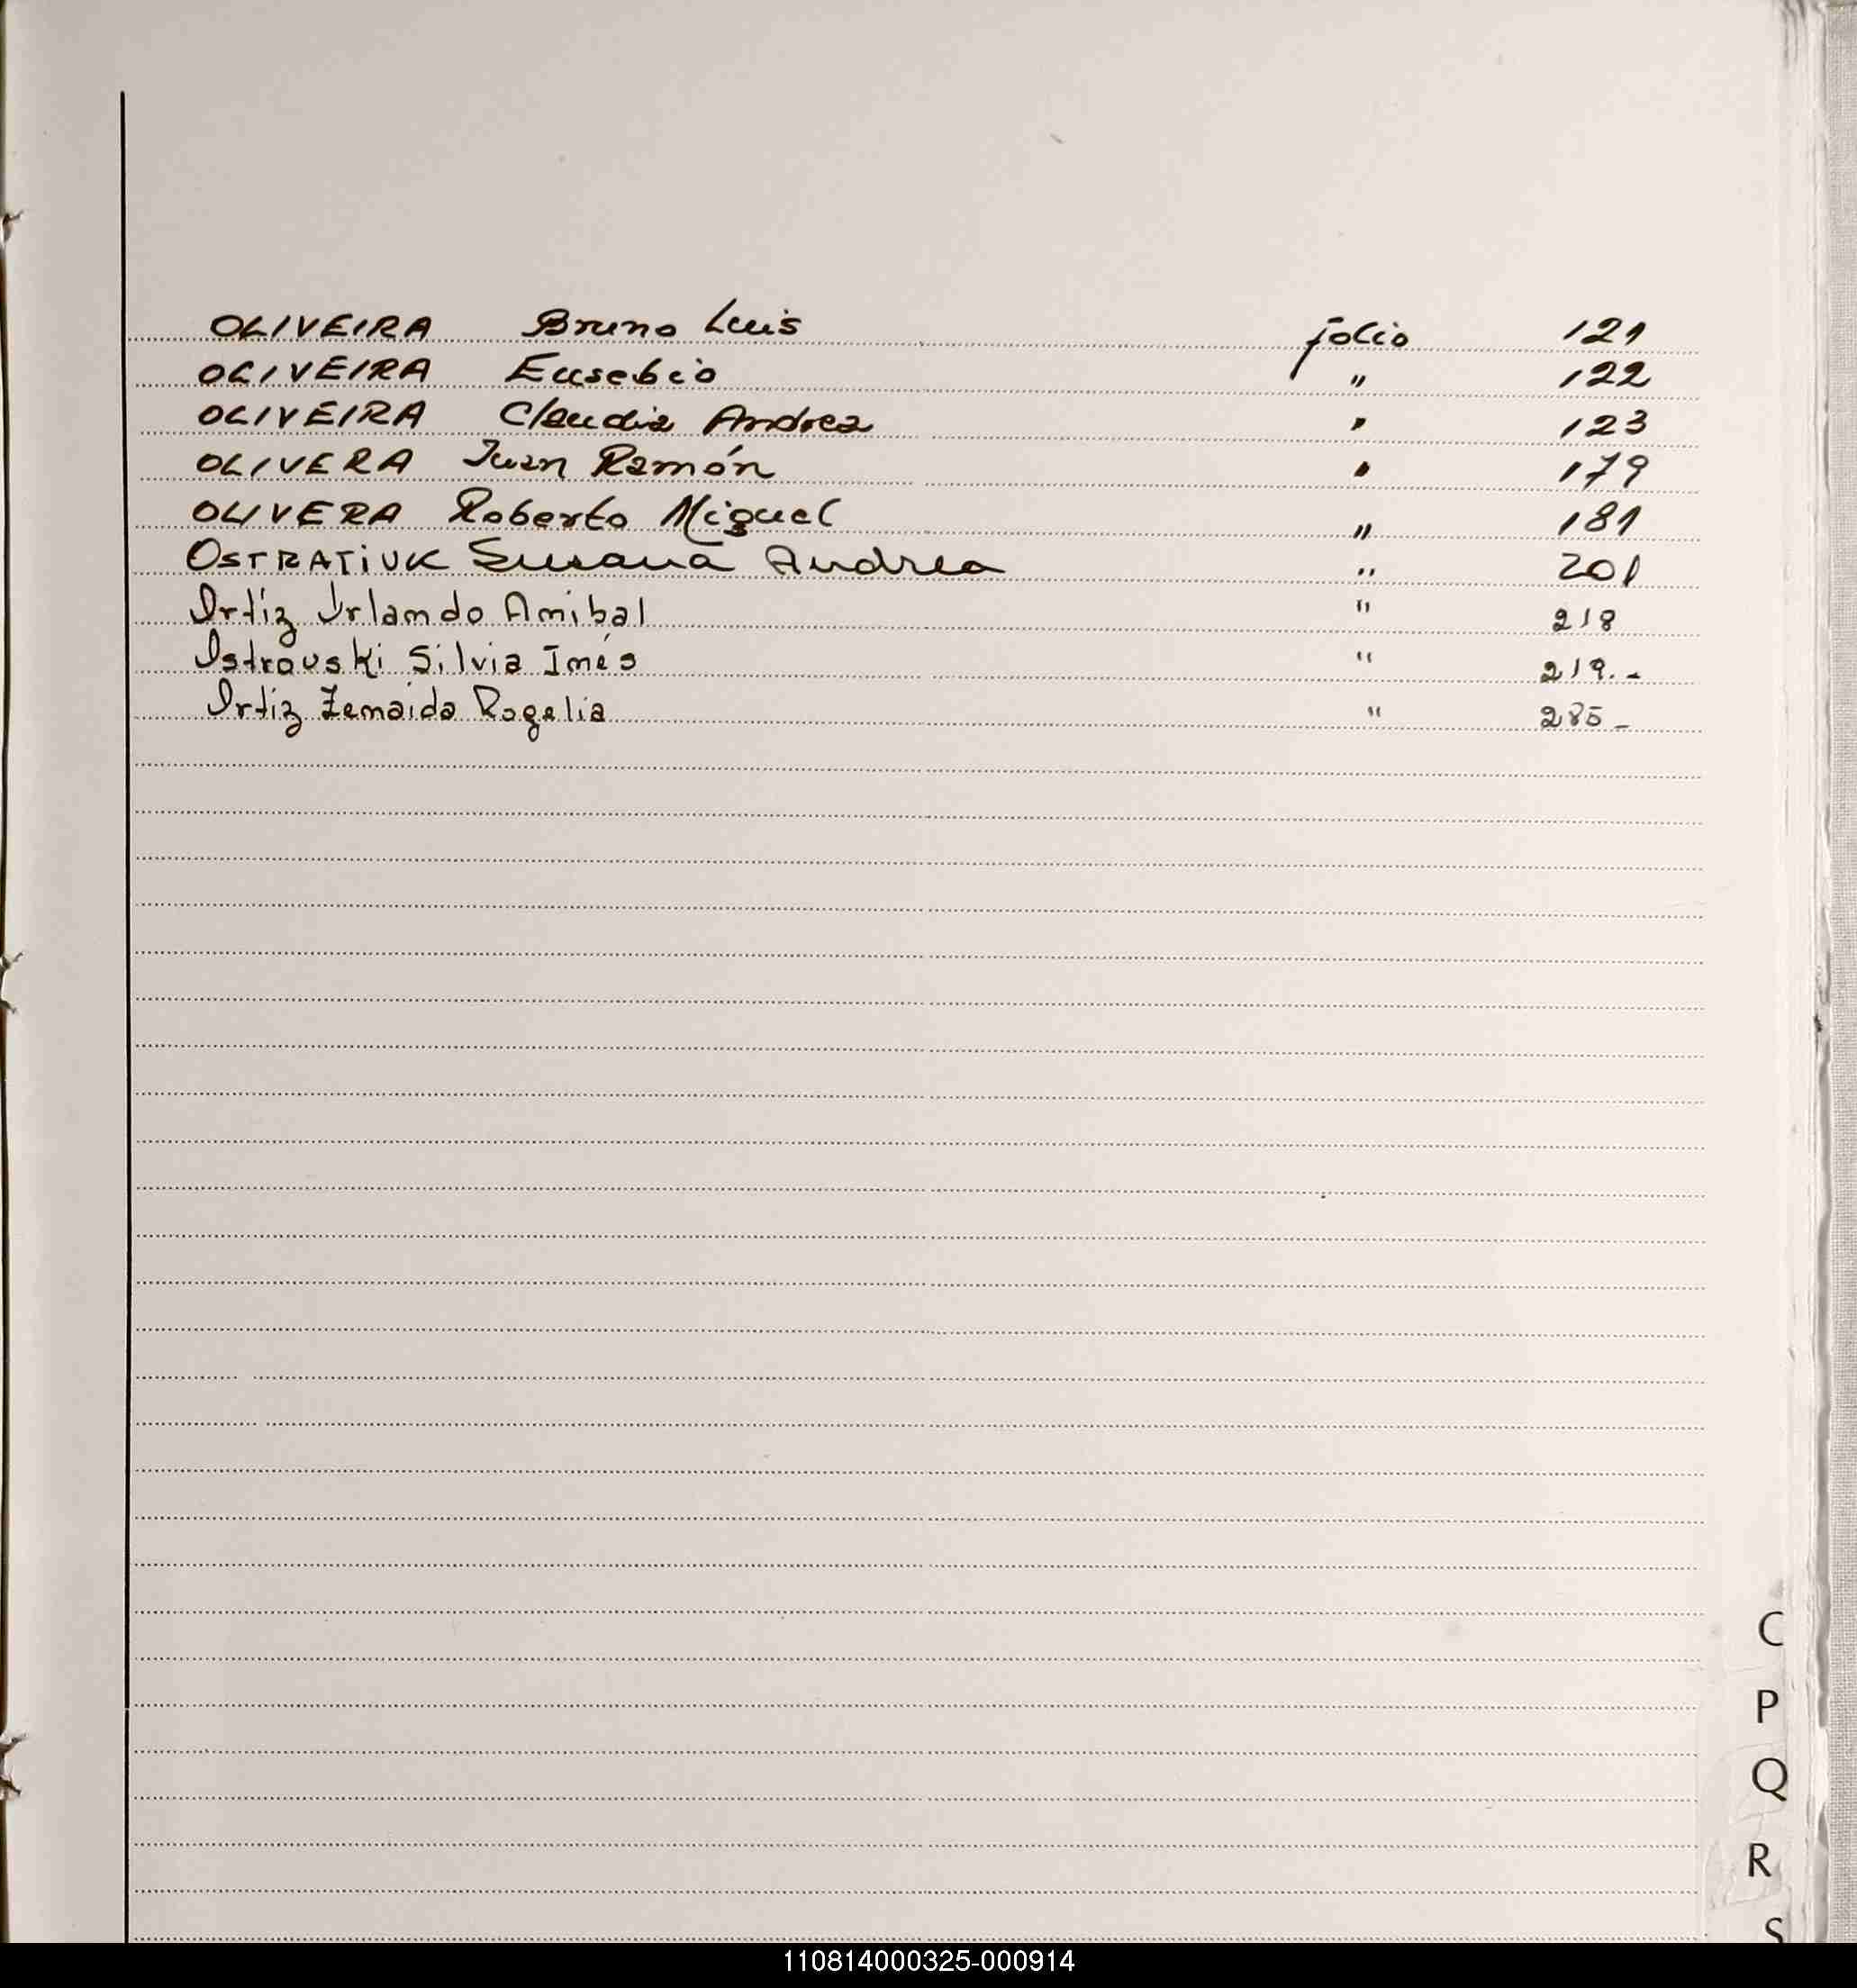 OLIVEIRA Bruno Luis folio 121
OLIVEIRA Eusebio " 122
OLIVEIRA Claudia Andrea " 123
OLIVERA Juan Ramón " 179
OLIVERA Roberto Miguel " 181
OSTRATIUK Susana Andrea " 201
Ortíz Orlando Anibal " 218
Ostrovski Silvia Inés " 219.-
Ortiz Zenaida Rogelia " 285-
C
P
Q
R
S
110814000325-000914